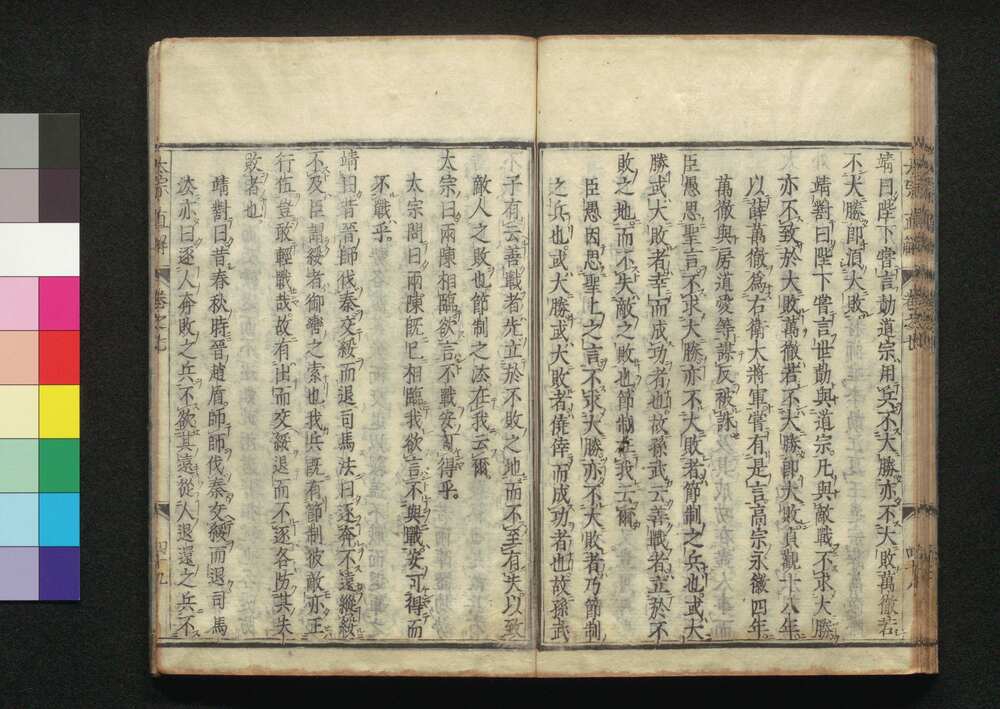 靖曰陛下嘗言勣道宗用兵不大勝亦不大敗萬徹若
不大勝即須大敗
靖對曰陛下嘗言世勣與道宗凡與敵戰不求大勝
亦不致於大敗萬徹若不大勝即大敗貞觀十八年
以薛萬徹爲右衛大將軍嘗有是言高宗永徽四年
萬徹與房遺愛等謀反被誅
臣愚思聖言不求大勝亦不大敗者節制之兵也或大
勝或大敗者幸而成功者也故孫武云善戰者立於不
敗之地而不失敵之敗也節制在我云爾
臣愚因思聖上之言不求大勝亦不大敗者乃節制
之兵也或大勝或大敗者僥倖而成功者也故孫武
子有云善戰者先立於不敗之地而不至有失以致
敵人之敗也節制之法在我云爾
太宗曰兩陳相臨欲言不戰安可得乎
太宗問曰兩陳既已相臨我欲言不與戰安可得而
不戰乎
靖曰昔晉師伐秦交綏而退司馬法曰逐奔不遠縱綏
不及臣謂綏者御轡之索也我兵既有節制彼敵亦正
行伍豈敢輕戰哉故有出而交綏退而不逐各防其失
敗者也
靖對曰昔春秋時晉趙盾師師伐秦交綏而退司馬
法亦曰逐人奔敗之兵不欲其遠從人退還之兵不
直解
四九